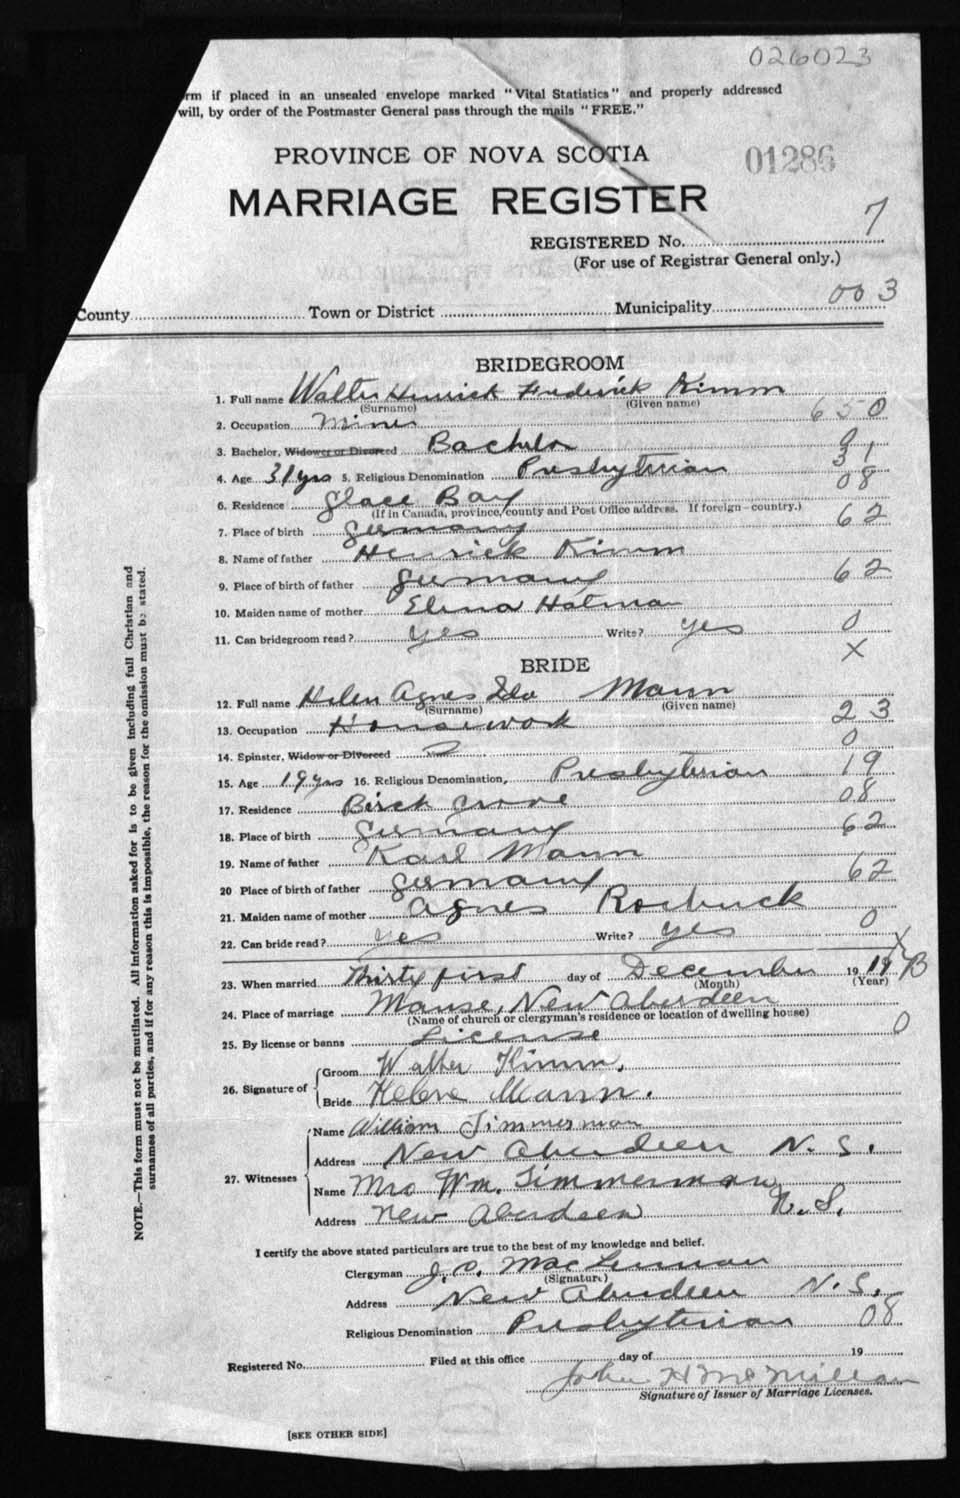 026023
rm if placed in an unsealed envelope marked "Vital Statistics" and properly addressed
will, by order of the Postmaster General pass through the mails "FREE."
PROVINCE OF NOVA SCOTIA
01286
MARRIAGE REGISTER
REGISTERED No. 7
(For use of Registrar General only.)
County Town or District Municipality 003
BRIDEGROOM
1. Full name Walter Henrick Frederick Kimm
(Surname) (Given name)
2. Occupation Miner 650
3. Bachelor, Widower or Divorced Bachelor 0
4. Age 31 yrs 5. Religious Denomination Presbyterian 31
6. Residence Glace Bay 08
(If in Canada, province, county and Post Office address. If foreign - country.)
7. Place of birth Germany 62
8. Name of father Henrick Kimm
9. Place of birth of father Germany 62
10. Maiden name of mother Elena Hatman
11. Can bridegroom read? yes Write? yes 0
X
BRIDE
12. Full name Helen Agnes Ida Mann
(Surname) (Given name)
13. Occupation Housework 23
14. Spinster, Widow or Divorced 0
15. Age 19 yrs 16. Religious Denomination, Presbyterian 19
17. Residence Birch Grove 08
18. Place of birth Germany 62
19. Name of father Karl Mann
20 Place of birth of father Germany 62
21. Maiden name of mother Agnes Roebuck
22. Can bride read? yes Write? yes 0
X
23. When married Thirty first day of December 19 B
(Month) (Year)
24. Place of marriage Manse, New Aberdeen
(Name of church or clergyman's residence or location of dwelling house)
25. By license or banns License 0
26. Signature of Groom Walter Kimm.
Bride Helene Mann.
27. Witnesses
Name William Timmerman
Address New Aberdeen N. S.
Name Mrs Wm. Timmerman
Address New Aberdeen N. S.
I certify the above stated particulars are true to the best of my knowledge and belief.
Clergyman J. D. MacLennan
(Signature)
Address New Aberdeen N. S.
Religious Denomination Presbyterian 08
Registered No. Filed at this office day of 19
John H McMillan
Signature of Issuer of Marriage Licenses.
[SEE OTHER SIDE]
NOTE.—This form must not be mutilated. All information asked for is to be given including full Christian and
surnames of all parties, and if for any reason this is impossible, the reason for the omission must be stated.